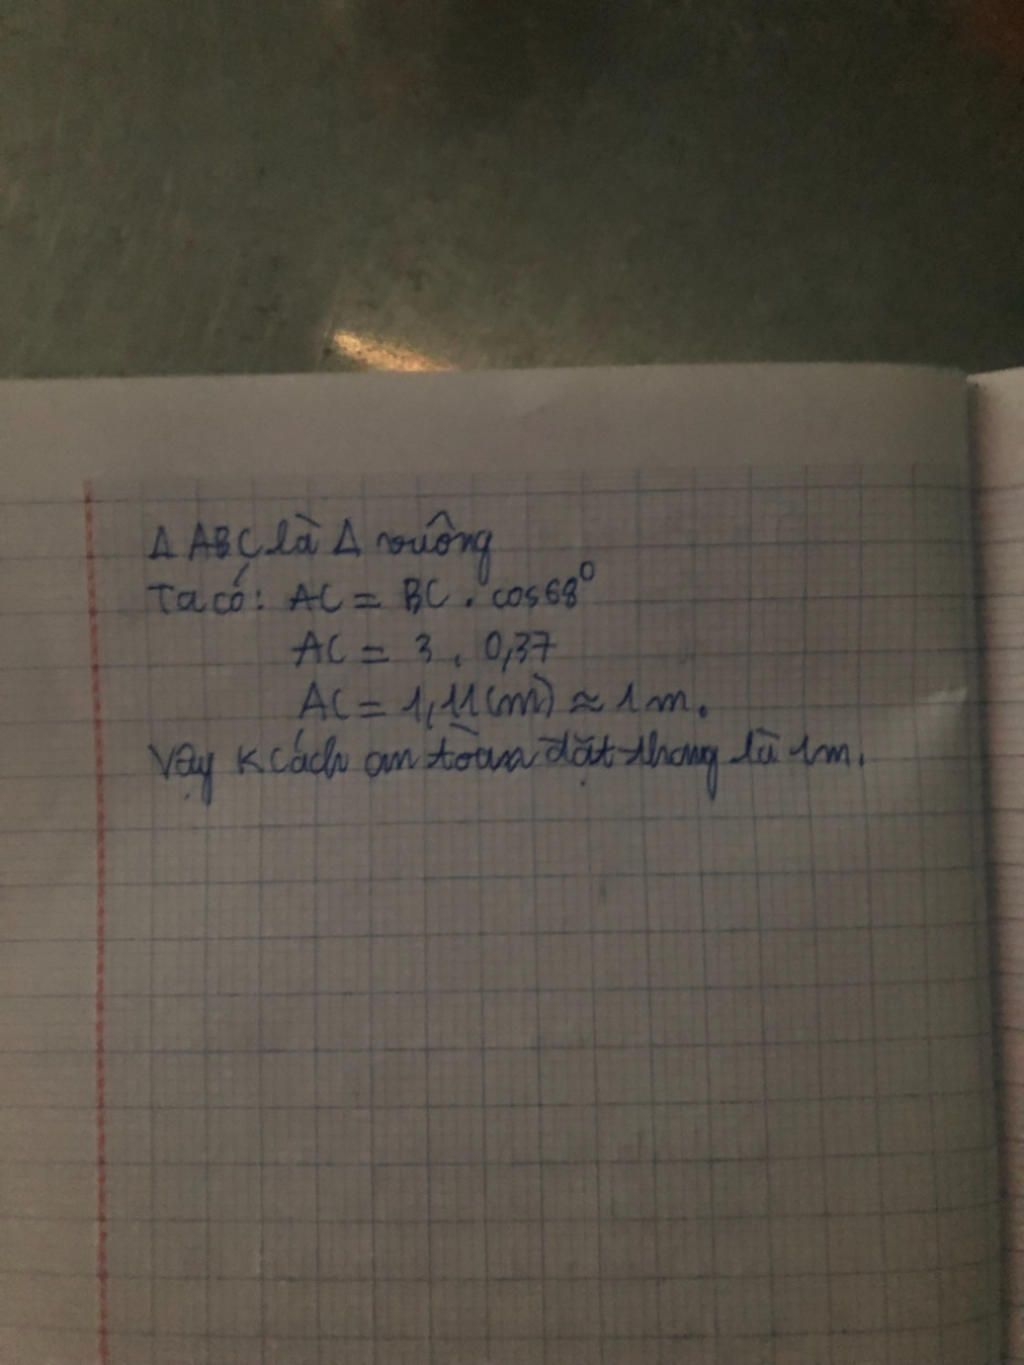 Δ ABC là Δ vuông
Ta có: AC = BC . cos68⁰
AC = 3 . 0,37
AC = 1,11(m) ≈ 1 m.
Vậy K cách an tòan đặt thang là 1m.